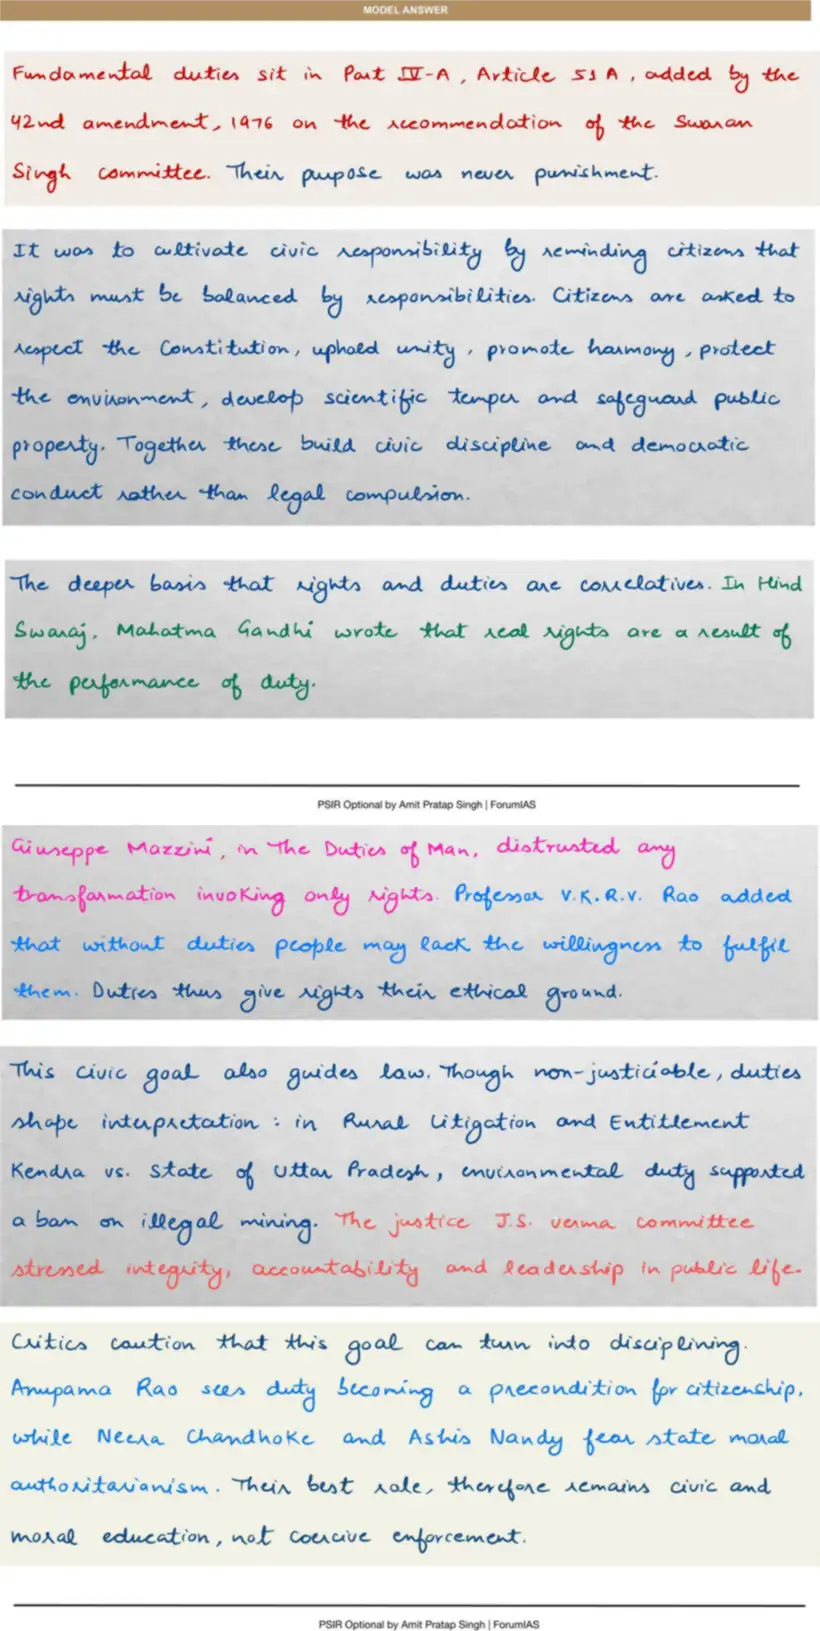 MODEL ANSWER
Fundamental duties sit in Part IV-A, Article 51A, added by the
42nd amendment, 1976 on the recommendation of the Swaran
Singh committee. Their purpose was never punishment.
It was to cultivate civic responsibility by reminding citizens that
rights must be balanced by responsibilities. Citizens are asked to
respect the Constitution, uphold unity, promote harmony, protect
the environment, develop scientific temper and safeguard public
property. Together these build civic discipline and democratic
conduct rather than legal compulsion.
The deeper basis that rights and duties are correlatives. In Hind
Swaraj, Mahatma Gandhi wrote that real rights are a result of
the performance of duty.
PSIR Optional by Amit Pratap Singh | ForumIAS
Giuseppe Mazzini, in The Duties of Man, distrusted any
transformation invoking only rights. Professor V.K.R.V. Rao added
that without duties people may lack the willingness to fulfil
them. Duties thus give rights their ethical ground.
This civic goal also guides law. Though non-justiciable, duties
shape interpretation : in Rural Litigation and Entitlement
Kendra vs. State of Uttar Pradesh, environmental duty supported
a ban on illegal mining. The justice J.S. verma committee
stressed integrity, accountability and leadership in public life.
Critics caution that this goal can turn into disciplining.
Anupama Rao sees duty becoming a precondition for citizenship,
while Neera Chandhoke and Ashis Nandy fear state moral
authoritarianism. Their best role, therefore remains civic and
moral education, not coercive enforcement.
PSIR Optional by Amit Pratap Singh | ForumIAS